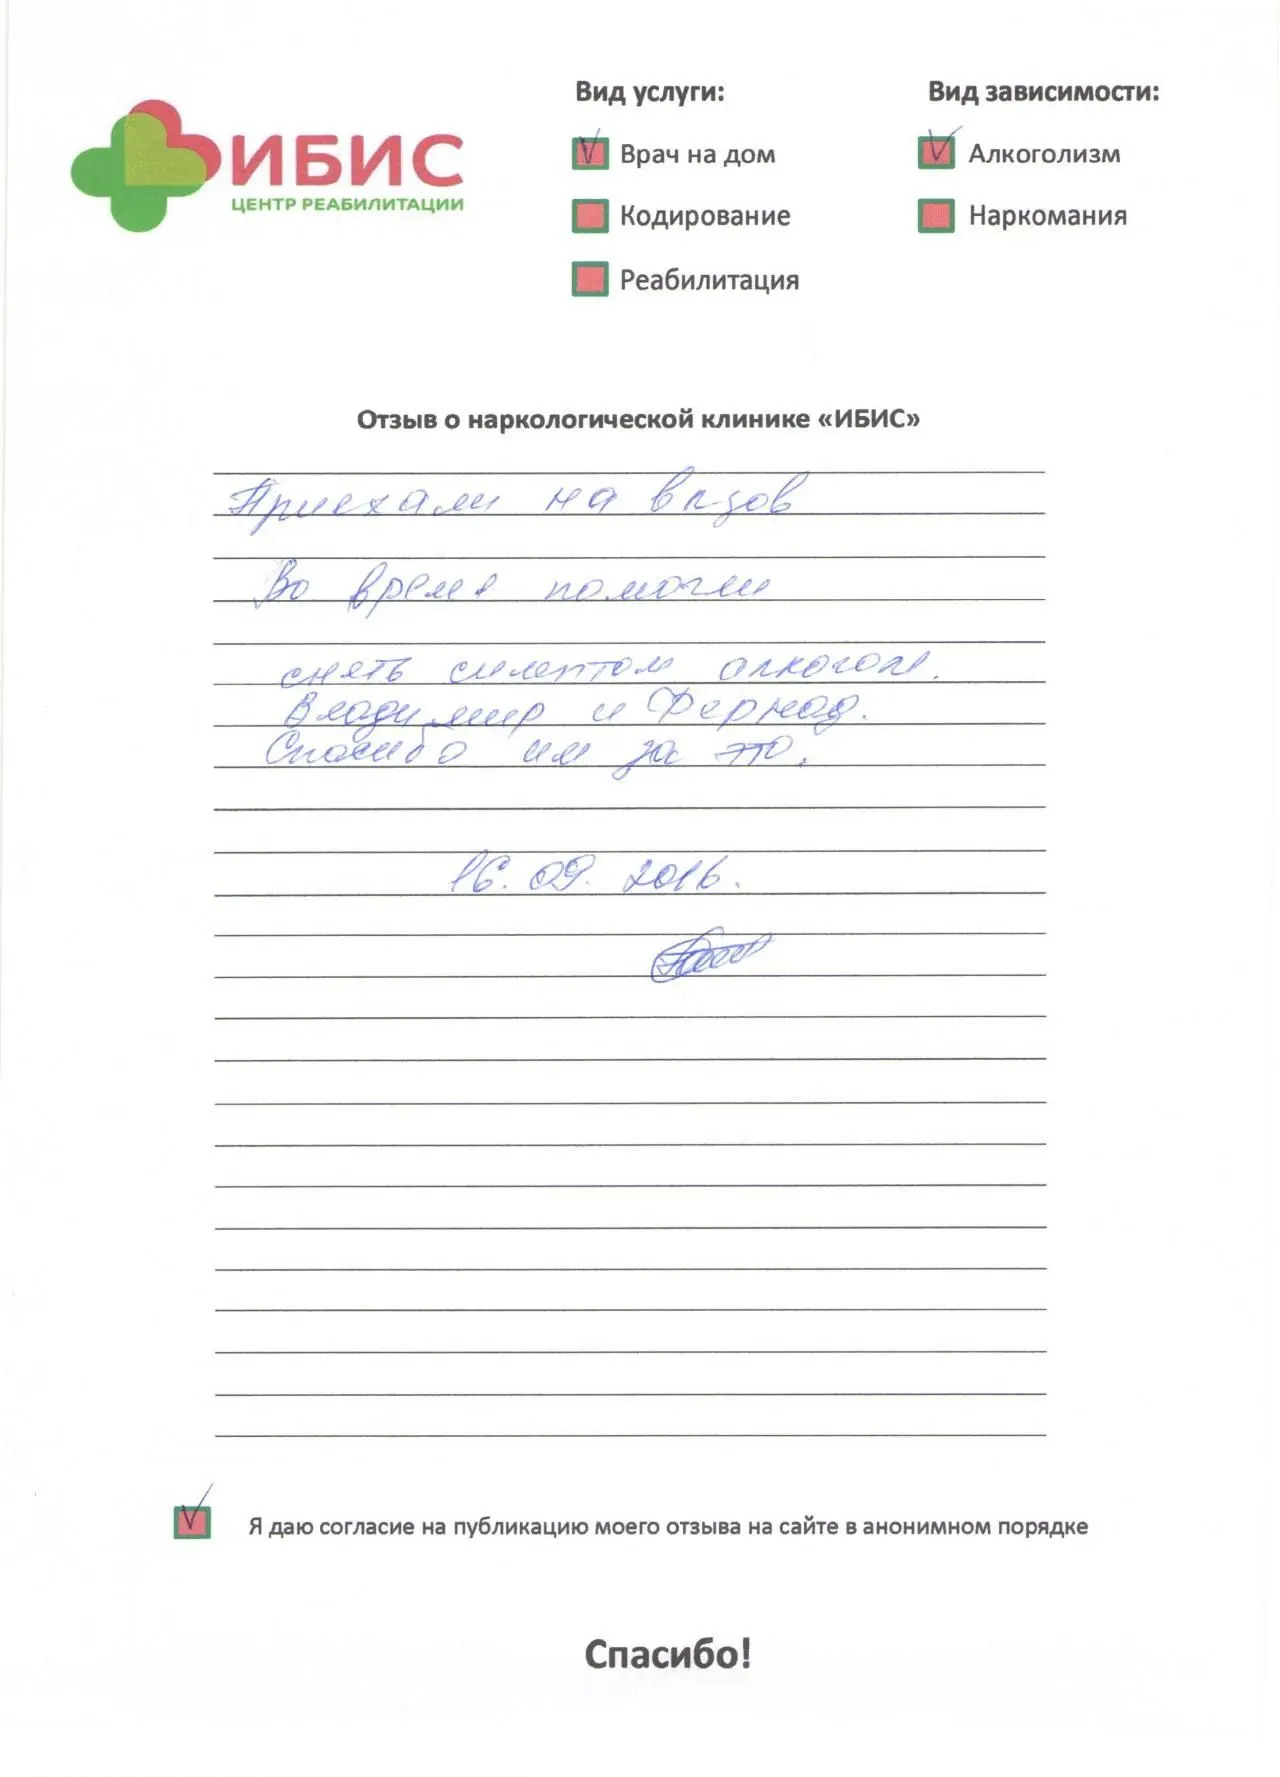 ИБИС
ЦЕНТР РЕАБИЛИТАЦИИ
Вид услуги:
Врач на дом
Кодирование
Реабилитация
Вид зависимости:
Алкоголизм
Наркомания
Отзыв о наркологической клинике «ИБИС»
Приехали на вызов
Во время помогли
снять симптом алкогол.
Владимир и Фернад.
Спасибо им за это.
16.09.2016.
Я даю согласие на публикацию моего отзыва на сайте в анонимном порядке
Спасибо!